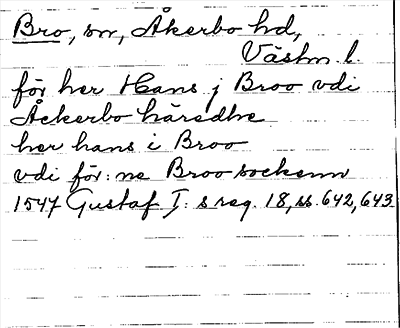 Bro, sn, Åkerbo hd,
Västm l.
för her Hans j Broo vdi
Åckerbo häredhe
her hans i Broo
vdi för: ne Broo sockenn
1547 Gustaf I: s reg. 18, ss. 642, 643